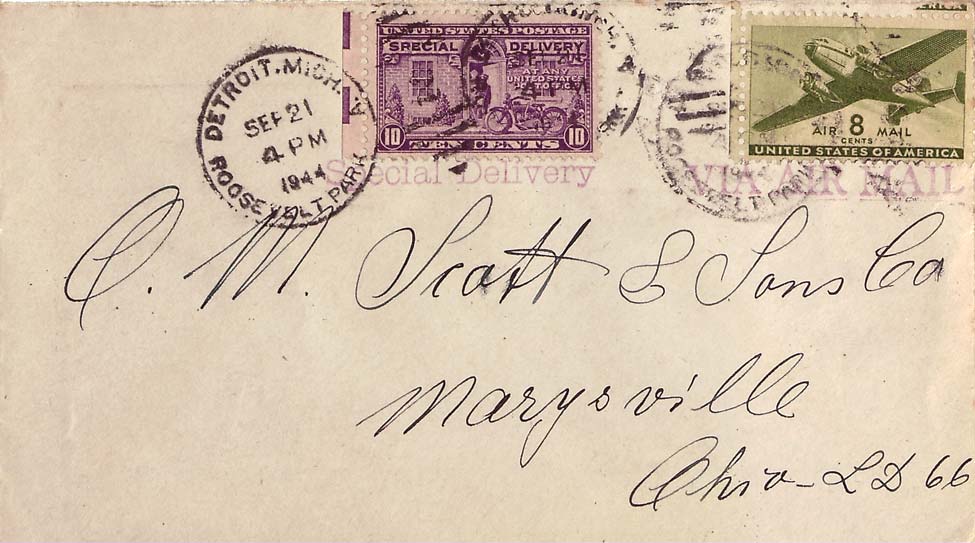 DETROIT, MICH. A
SEP 21
4 PM
1944
ROOSEVELT PARK
UNITED STATES POSTAGE
SPECIAL DELIVERY
AT ANY
UNITED STATES
POST OFFICE
10 TEN CENTS 10
AIR 8 MAIL
CENTS
UNITED STATES OF AMERICA
Special Delivery VIA AIR MAIL
O. M. Scott & Sons Co
Marysville
Ohio - LD 66